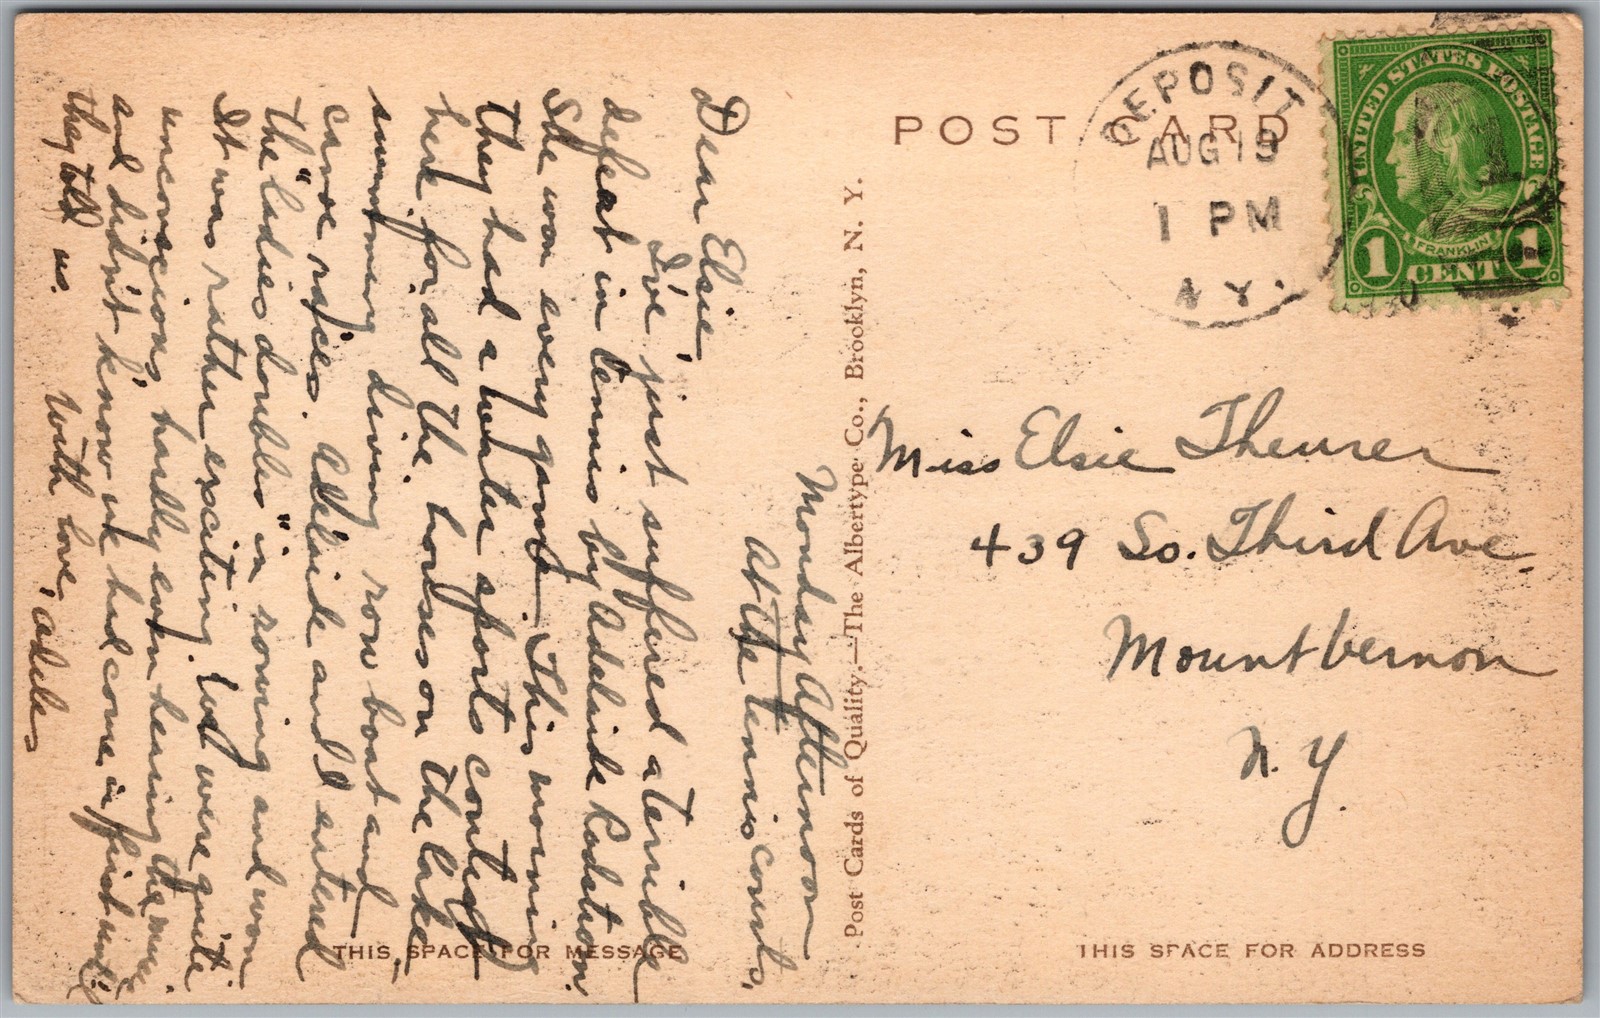 POST CARD
DEPOSIT
AUG 19
1 PM
N.Y.
UNITED STATES POSTAGE
FRANKLIN
1 CENT 1
Monday Afternoon
At the tennis courts,
Dear Elsie,
I've just suffered a terrible
defeat in tennis by Adelaide
She won every game. This morning
they had a water sports contest
here for all the houses on the lake
swimming diving row boat and
canoe races. Adelaide and I entered
the "ladies doubles" in rowing and won
It was rather exciting, but were quite
unconscious, hardly even hearing the
and didn't know we had come in first until
they told us. With love, Adele
Post Cards of Quality.—The Albertype Co., Brooklyn, N. Y.
Miss Elsie Theurer
439 So. Third Ave.
Mount Vernon
N. Y.
THIS SPACE FOR MESSAGE
THIS SPACE FOR ADDRESS